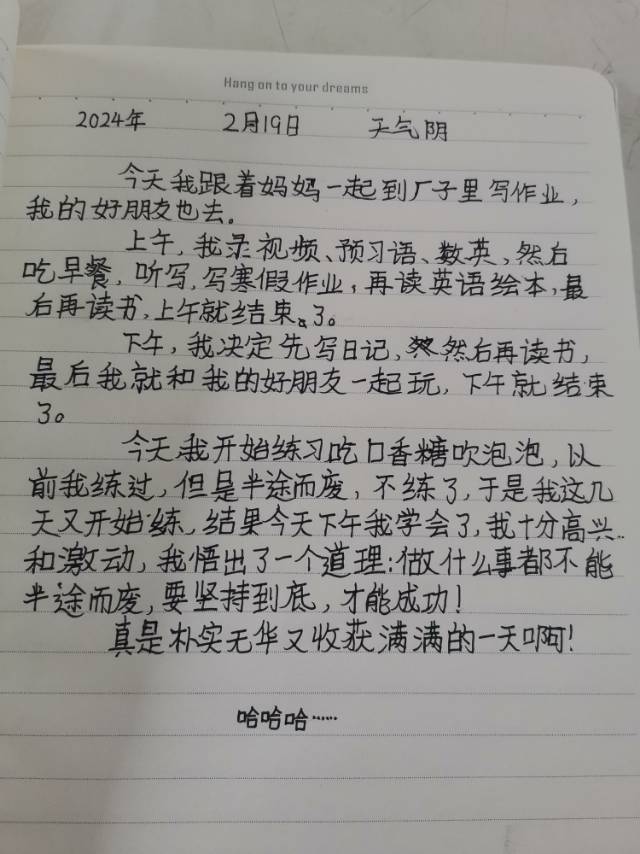 Hang on to your dreams
2024年 2月19日 天气阴
今天我跟着妈妈一起到厂子里写作业,
我的好朋友也去。
上午,我录视频、预习语、数英,然后
吃早餐,听写,写寒假作业,再读英语绘本,最
后再读书,上午就结束了。
下午,我决定先写日记,然后再读书,
最后我就和我的好朋友一起玩,下午就结束
了。
今天我开始练习吃口香糖吹泡泡,以
前我练过,但是半途而废,不练了,于是我这几
天又开始练,结果今天下午我学会了,我十分高兴
和激动,我悟出了一个道理:做什么事都不能
半途而废,要坚持到底,才能成功!
真是朴实无华又收获满满的一天啊!
哈哈哈……